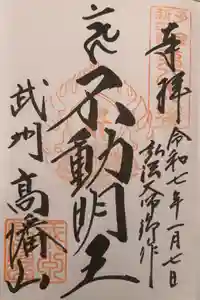 奉拝
令和七年一月七日
弘法大師御作
不動明王
武州 高幡山